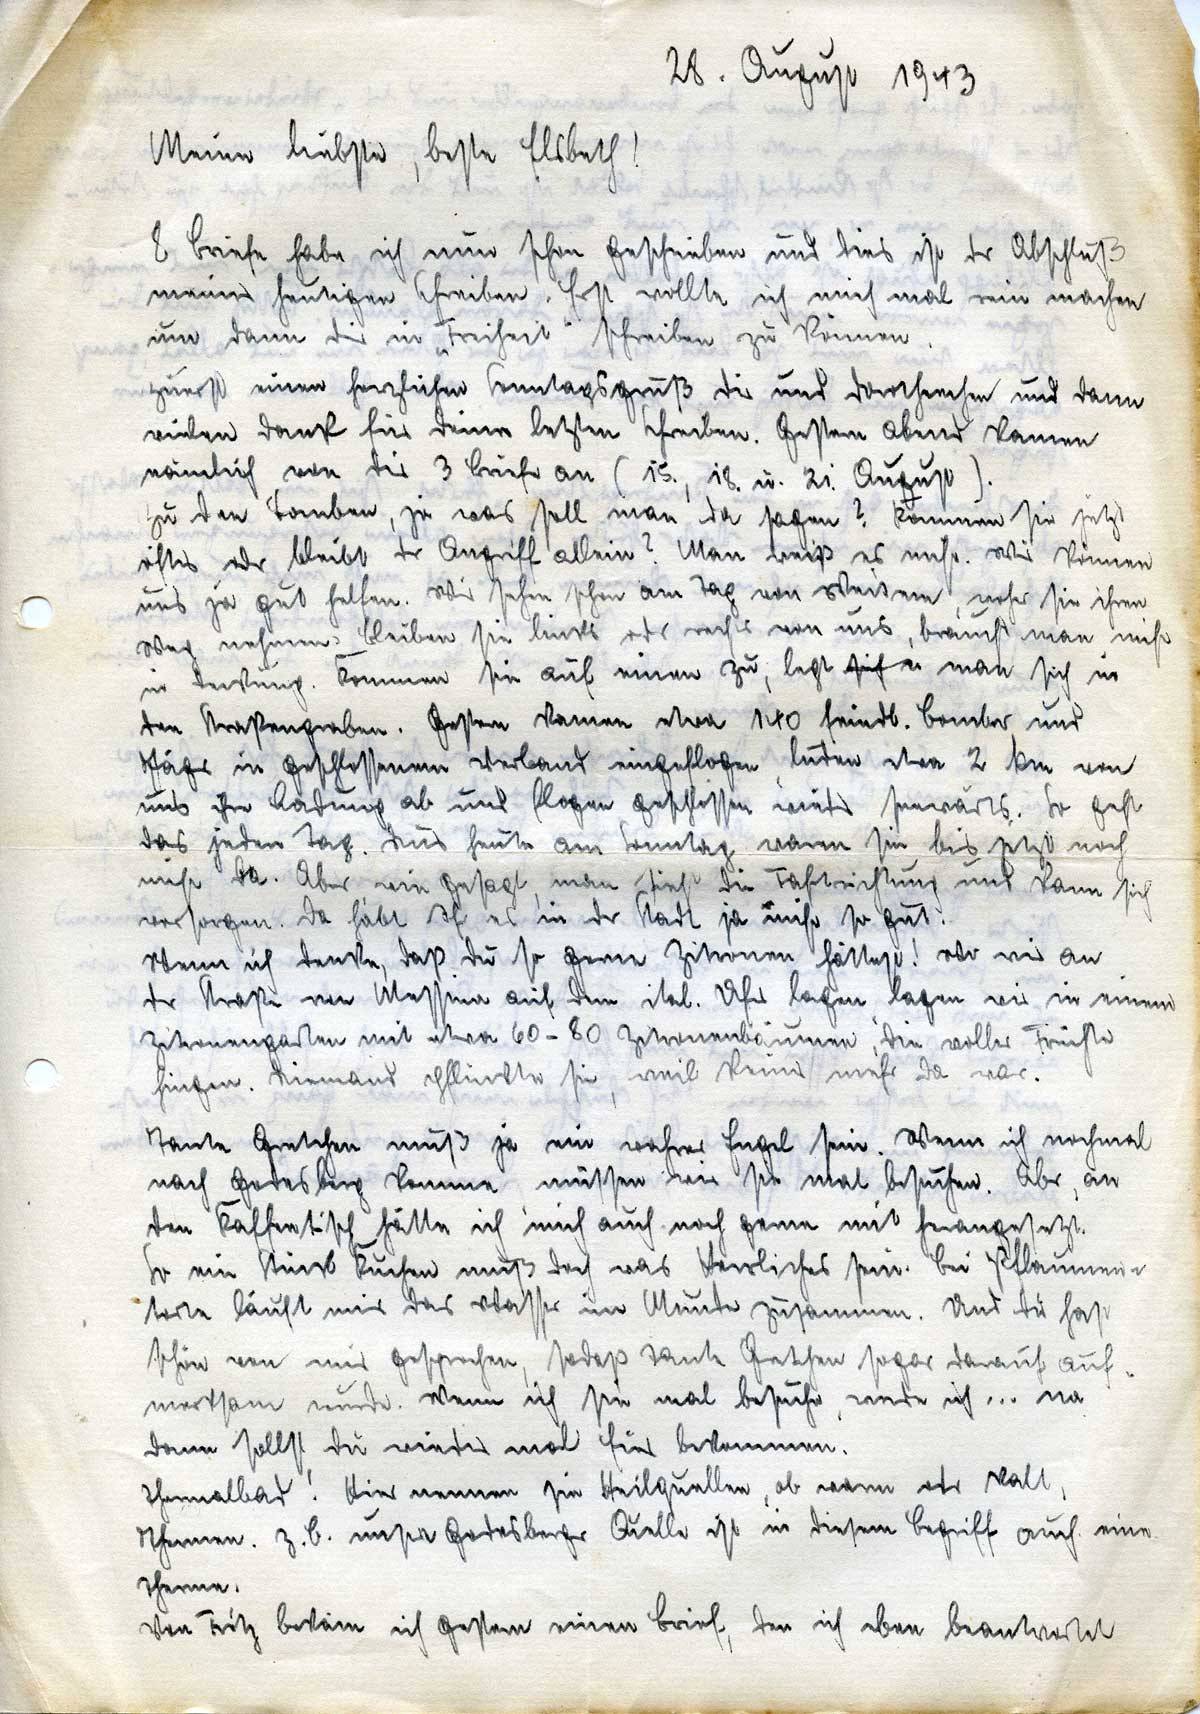 28. August 1943
Meine liebste, beste Elsbeth!
8 Briefe habe ich nun schon geschrieben und dies ist der Abschluß
meines heutigen Schreiben. Erst wollte ich mich mal rein machen
um dann dir in „Freiheit" schreiben zu können.
Zuerst einen herzlichen Sonntagsgruß dir und Dorotheechen und dann
vielen Dank für deine letzten Schreiben. Gestern abend kamen
nämlich von dir 3 Briefe an (15., 18. u. 21. August).
Zu den Bomben, ja was soll man da sagen? Kommen sie jetzt
öfter oder bleibt der Angriff allein? Man weiß es nicht. Wir können
uns ja gut helfen. Wir sehen schon am Tag von Weitem, woher sie ihren
Weg nehmen. Bleiben sie links oder rechts von uns, braucht man nicht
in Deckung. Kommen sie auf einen zu, legt man sich in
den Straßengraben. Gestern kamen etwa 140 feindl. Bomber und
Jäger in geschlossenem Verband eingeflogen, luden etwa 2 km von
uns ihre Ladung ab und flogen geschlossen wieder seewärts. So geht
das jeden Tag. Nur heute am Sonntag waren sie bis jetzt noch
nicht da. Aber wie gesagt, man sieht die Fahrtrichtung und kann sich
vorsorgen. Da habt Ihr es in der Stadt ja nicht so gut.
Wenn ich denke, daß du so gerne Zitronen hättest! Wo wir an
der Straße von Messina auf dem ital. Ufer lagen, lagen wir in einem
Zitronengarten mit etwa 60–80 Zitronenbäumen, die voller Früchte
hingen. Niemand pflückte sie, weil keiner mehr da war.
Tante Gretchen muß ja ein wahrer Engel sein. Wenn ich nochmal
nach Godesberg komme müssen wir sie mal besuchen. Aber, an
den Kaffeetisch hätte ich mich auch noch gerne mit herangesetzt.
So ein Stück Kuchen muß doch was Herrliches sein. Bei Pflaumen-
torte läuft mir das Wasser im Munde zusammen. Und du hast
schön von mir gesprochen, sodaß Tante Gretchen sogar darauf auf-
merksam wurde. Wenn ich sie mal besuche, werde ich ... na
dann sollst du wieder mal für bekommen.
Thermalbad! Hier nennen sie Heilquellen, ob warm oder kalt,
Thermen. Z.B. unsere Godesberger Quelle ist in diesem Begriff auch eine
Therme.
Von Fritz bekam ich gestern einen Brief, den ich eben beantwortet